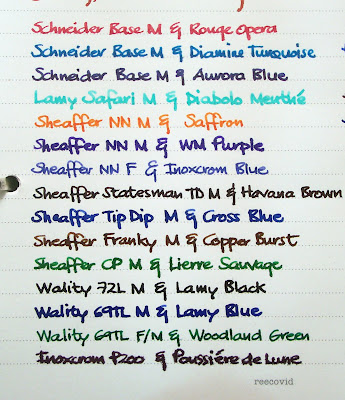 Schneider Base M & Rouge Opera
Schneider Base M & Diamine Turquoise
Schneider Base M & Aurora Blue
Lamy Safari M & Diabolo Menthé
Sheaffer NN M & Saffron
Sheaffer NN M & WM Purple
Sheaffer NN F & Inoxcrom Blue
Sheaffer Statesman TD M & Havana Brown
Sheaffer Tip Dip M & Cross Blue
Sheaffer Franky M & Copper Burst
Sheaffer CP M & Lierre Sauvage
Wality 72L M & Lamy Black
Wality 69TL M & Lamy Blue
Wality 69TL F/M & Woodland Green
Inoxcrom P200 & Poussiére de Lune
reecovid